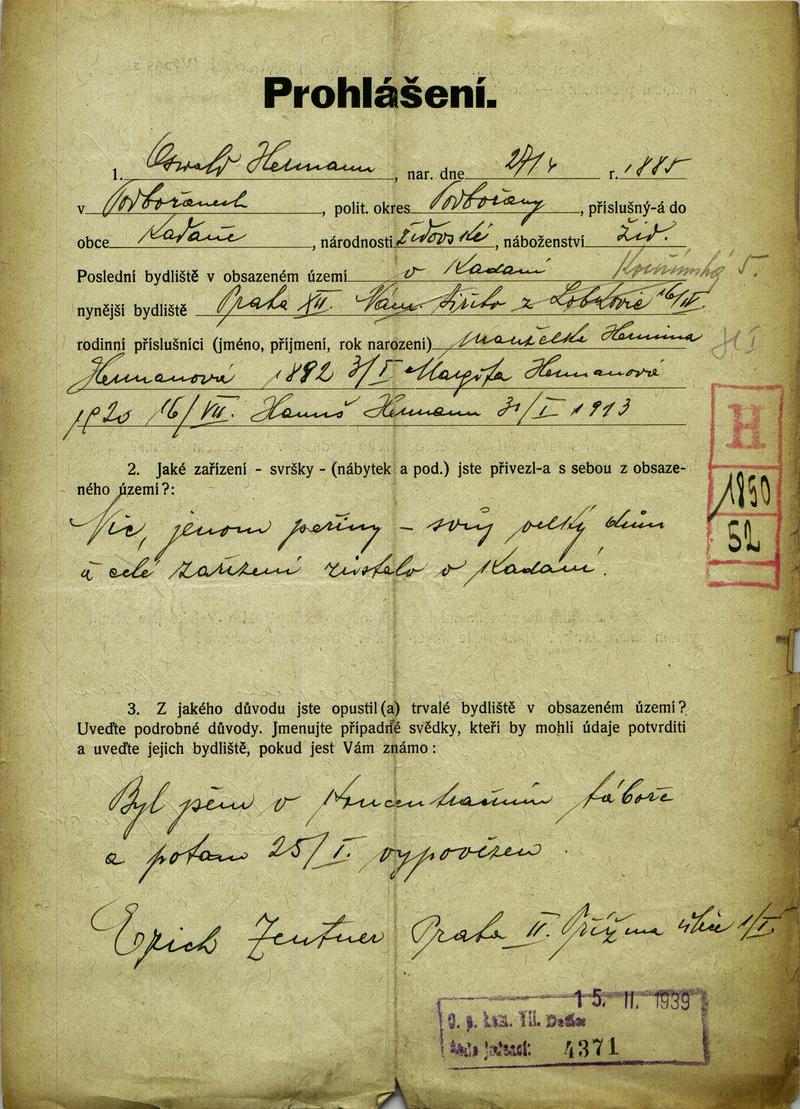 Prohlášení.
1. Oswald Hermann, nar. dne 27/4 r. 1885
v Podbořanech, polit. okres Podbořany, příslušný-á do
obce Kadaně, národnosti židovské, náboženství žid.
Poslední bydliště v obsazeném území v Kadani Kouřimská 5.
nynější bydliště Praha XII. z Lobkovic 16/III.
rodinní příslušníci (jméno, příjmení, rok narození) manželka Hermina
Hermanová 1892 3/I Margita Hermanová
1920 16/VII. Hanuš Hermann 31/I 1913
H
1890
52
2. Jaké zařízení - svršky - (nábytek a pod.) jste přivezl-a s sebou z obsaze-
ného území?:
Nic, jenom peřiny – svůj velký dům
a celé zařízení zůstalo v Kadani.
3. Z jakého důvodu jste opustil(a) trvalé bydliště v obsazeném území?
Uveďte podrobné důvody. Jmenujte případné svědky, kteří by mohli údaje potvrditi
a uveďte jejich bydliště, pokud jest Vám známo:
Byl jsem v Koncentračním táboře
a potom 25/I. vypovězen.
Erich Zentner Praha II. ulice 1/I.
15. II. 1939
4371